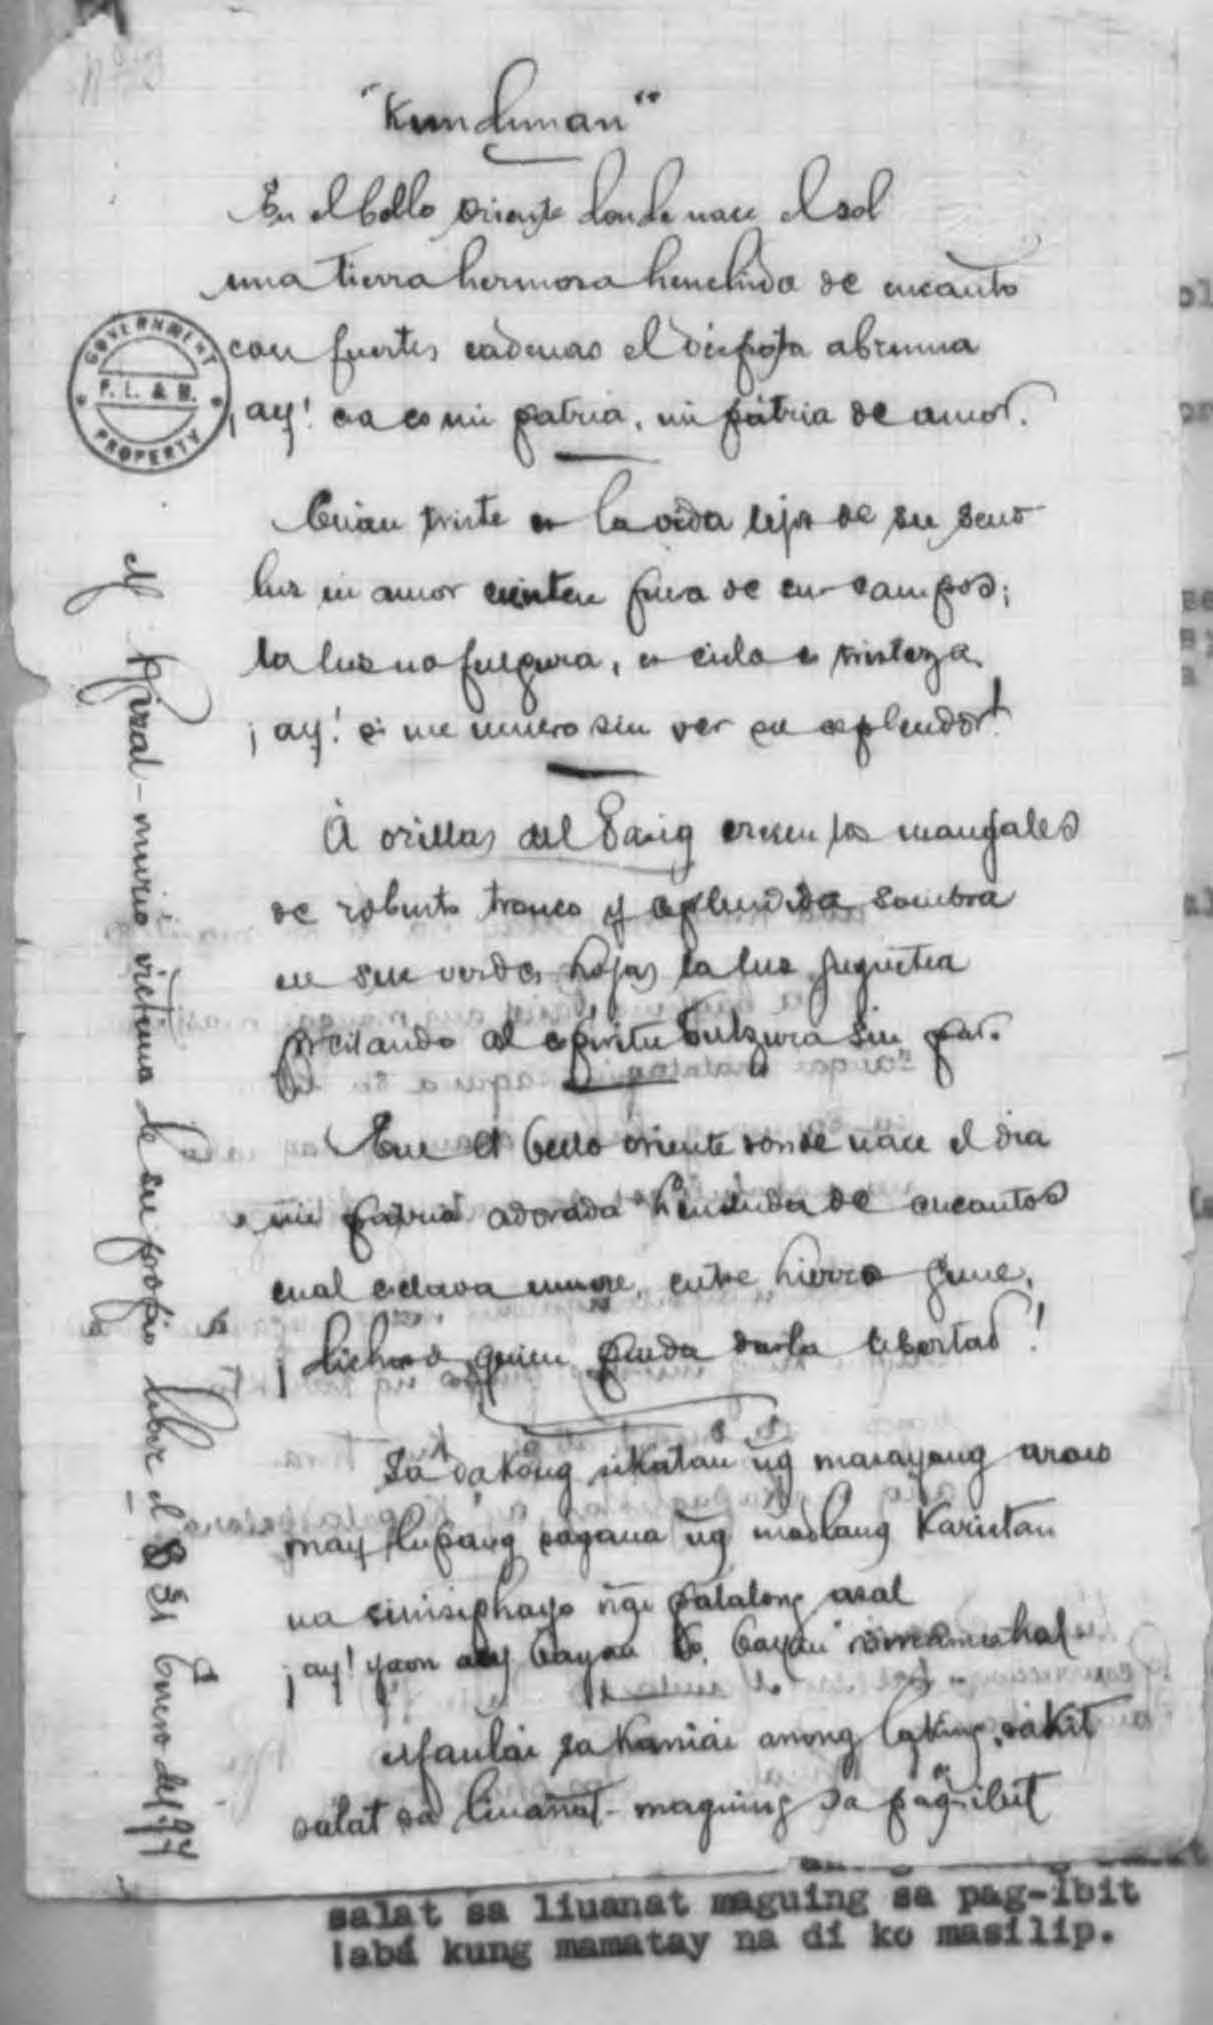 "Kundiman"
En el bello oriente donde nace el sol
una tierra hermosa henchida de encanto
con fuertes cadenas el déspota abruma
¡ay! esa es mi patria, mi pátria de amor.
Cuán triste es la vida lejos de su seno
luz ni amor existen fuera de sus campos;
la luz no fulgura, su cielo es tristeza,
¡ay! si me muero sin ver su esplendor!
À orillas del Pasig crecen los mangales
de robusto tronco y esplendida sombra
en sus verdes hojas la luz juguetea
prestando al espiritu dulzura sin par.
En el bello oriente donde nace el dia
mi pátria adorada henchida de encantos
cual esclava muere, entre hierros gime,
¡dichoso quien pueda darla libertad!
Sa dakong sikatan ng masayang arao
may lupang sagana ng madlang Karictan
na sinisiphayo nga palalong asal
¡ay! yaon ay bayan ko, bayan minamahal
Maulai sa kaniai anong laking sakit
salat sa liuanat maguing sa pag-ibit
M Rizal - murió victima de su propio labor el 31 Enero del 97
GOVERNMENT
P. L. & M.
PROPERTY
salat sa liuanat maguing sa pag-ibit
!abá kung mamatay na di ko masilip.